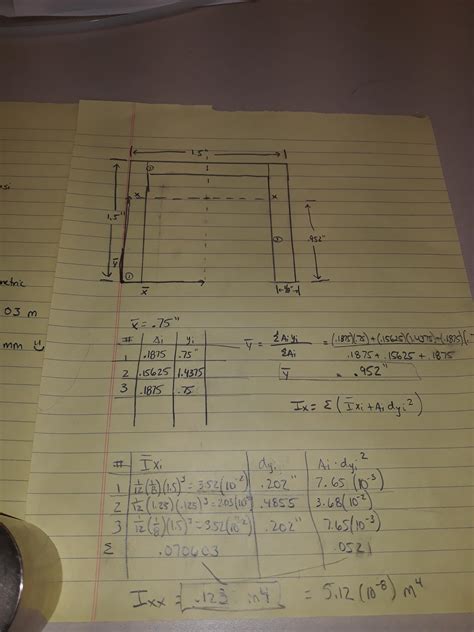 1.5"
①
x
x
1.5"
.952"
ȳ
①
③
x̄
03 m
mm
x̄ = .75"
# | Ai | yi
1 | .1875 | .75"
2 | .15625 | 1.4375
3 | .1875 | .75
ȳ = ΣAiyi / ΣAi = (.1875)(.75)+(.15625)(1.4375)+(.1875)(.
.1875 + .15625 + .1875
ȳ = .952"
Ix = Σ (Īxi + Ai dyi²)
# | Īxi | dyi | Ai·dyi²
1 | 1/12 (1/8)(1.5)³ = 3.52(10⁻²) | .202" | 7.65 (10⁻³)
2 | 1/12 (1.25)(.125)³ = 2.03(10⁻⁴) | .4855 | 3.68(10⁻²)
3 | 1/12 (1/8)(1.5)³ = 3.52(10⁻²) | .202" | 7.65(10⁻³)
Σ | .070603 | .0521
Ixx = .123 in4 = 5.12(10⁻⁸) m⁴